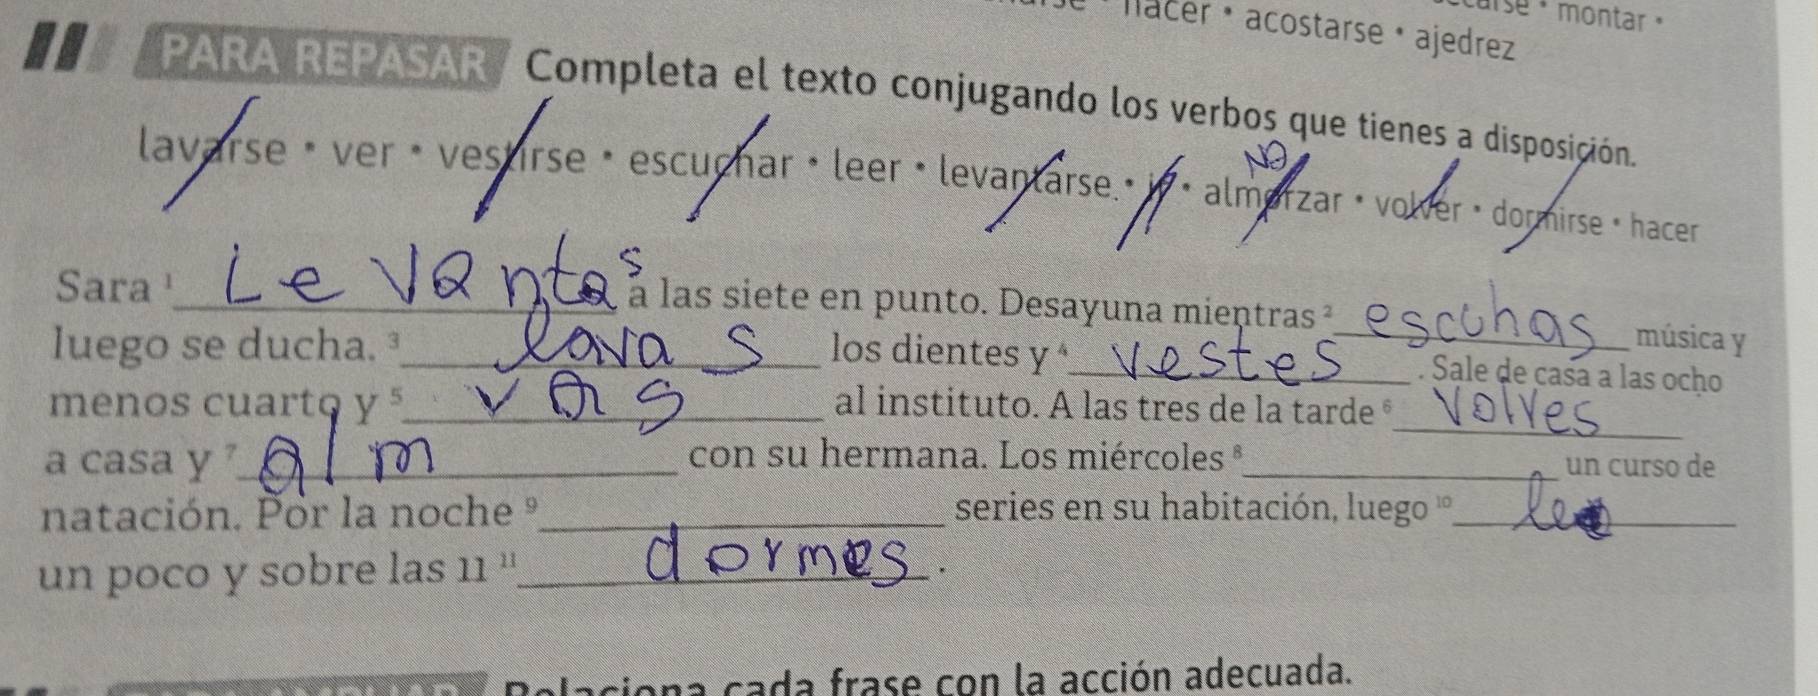 nacer • acostarse • ajedrez
montar •
PARA REPASAR Completa el texto conjugando los verbos que tienes a disposición.
NO
lavarse • ver • vestirse • escuchar • leer • levantarse. • ir • almorzar • volver • dormirse • hacer
Sara ¹ Levantas a las siete en punto. Desayuna mientras ² escuhas música y
luego se ducha. ³ lavas los dientes y ⁴ vestes . Sale de casa a las ocho
menos cuarto y ⁵ vas al instituto. A las tres de la tarde ⁶ Volves
a casa y ⁷ alm con su hermana. Los miércoles ⁸ un curso de
natación. Por la noche ⁹ series en su habitación, luego ¹⁰ lee
un poco y sobre las 11 ¹¹ dormes .
cada frase con la acción adecuada.